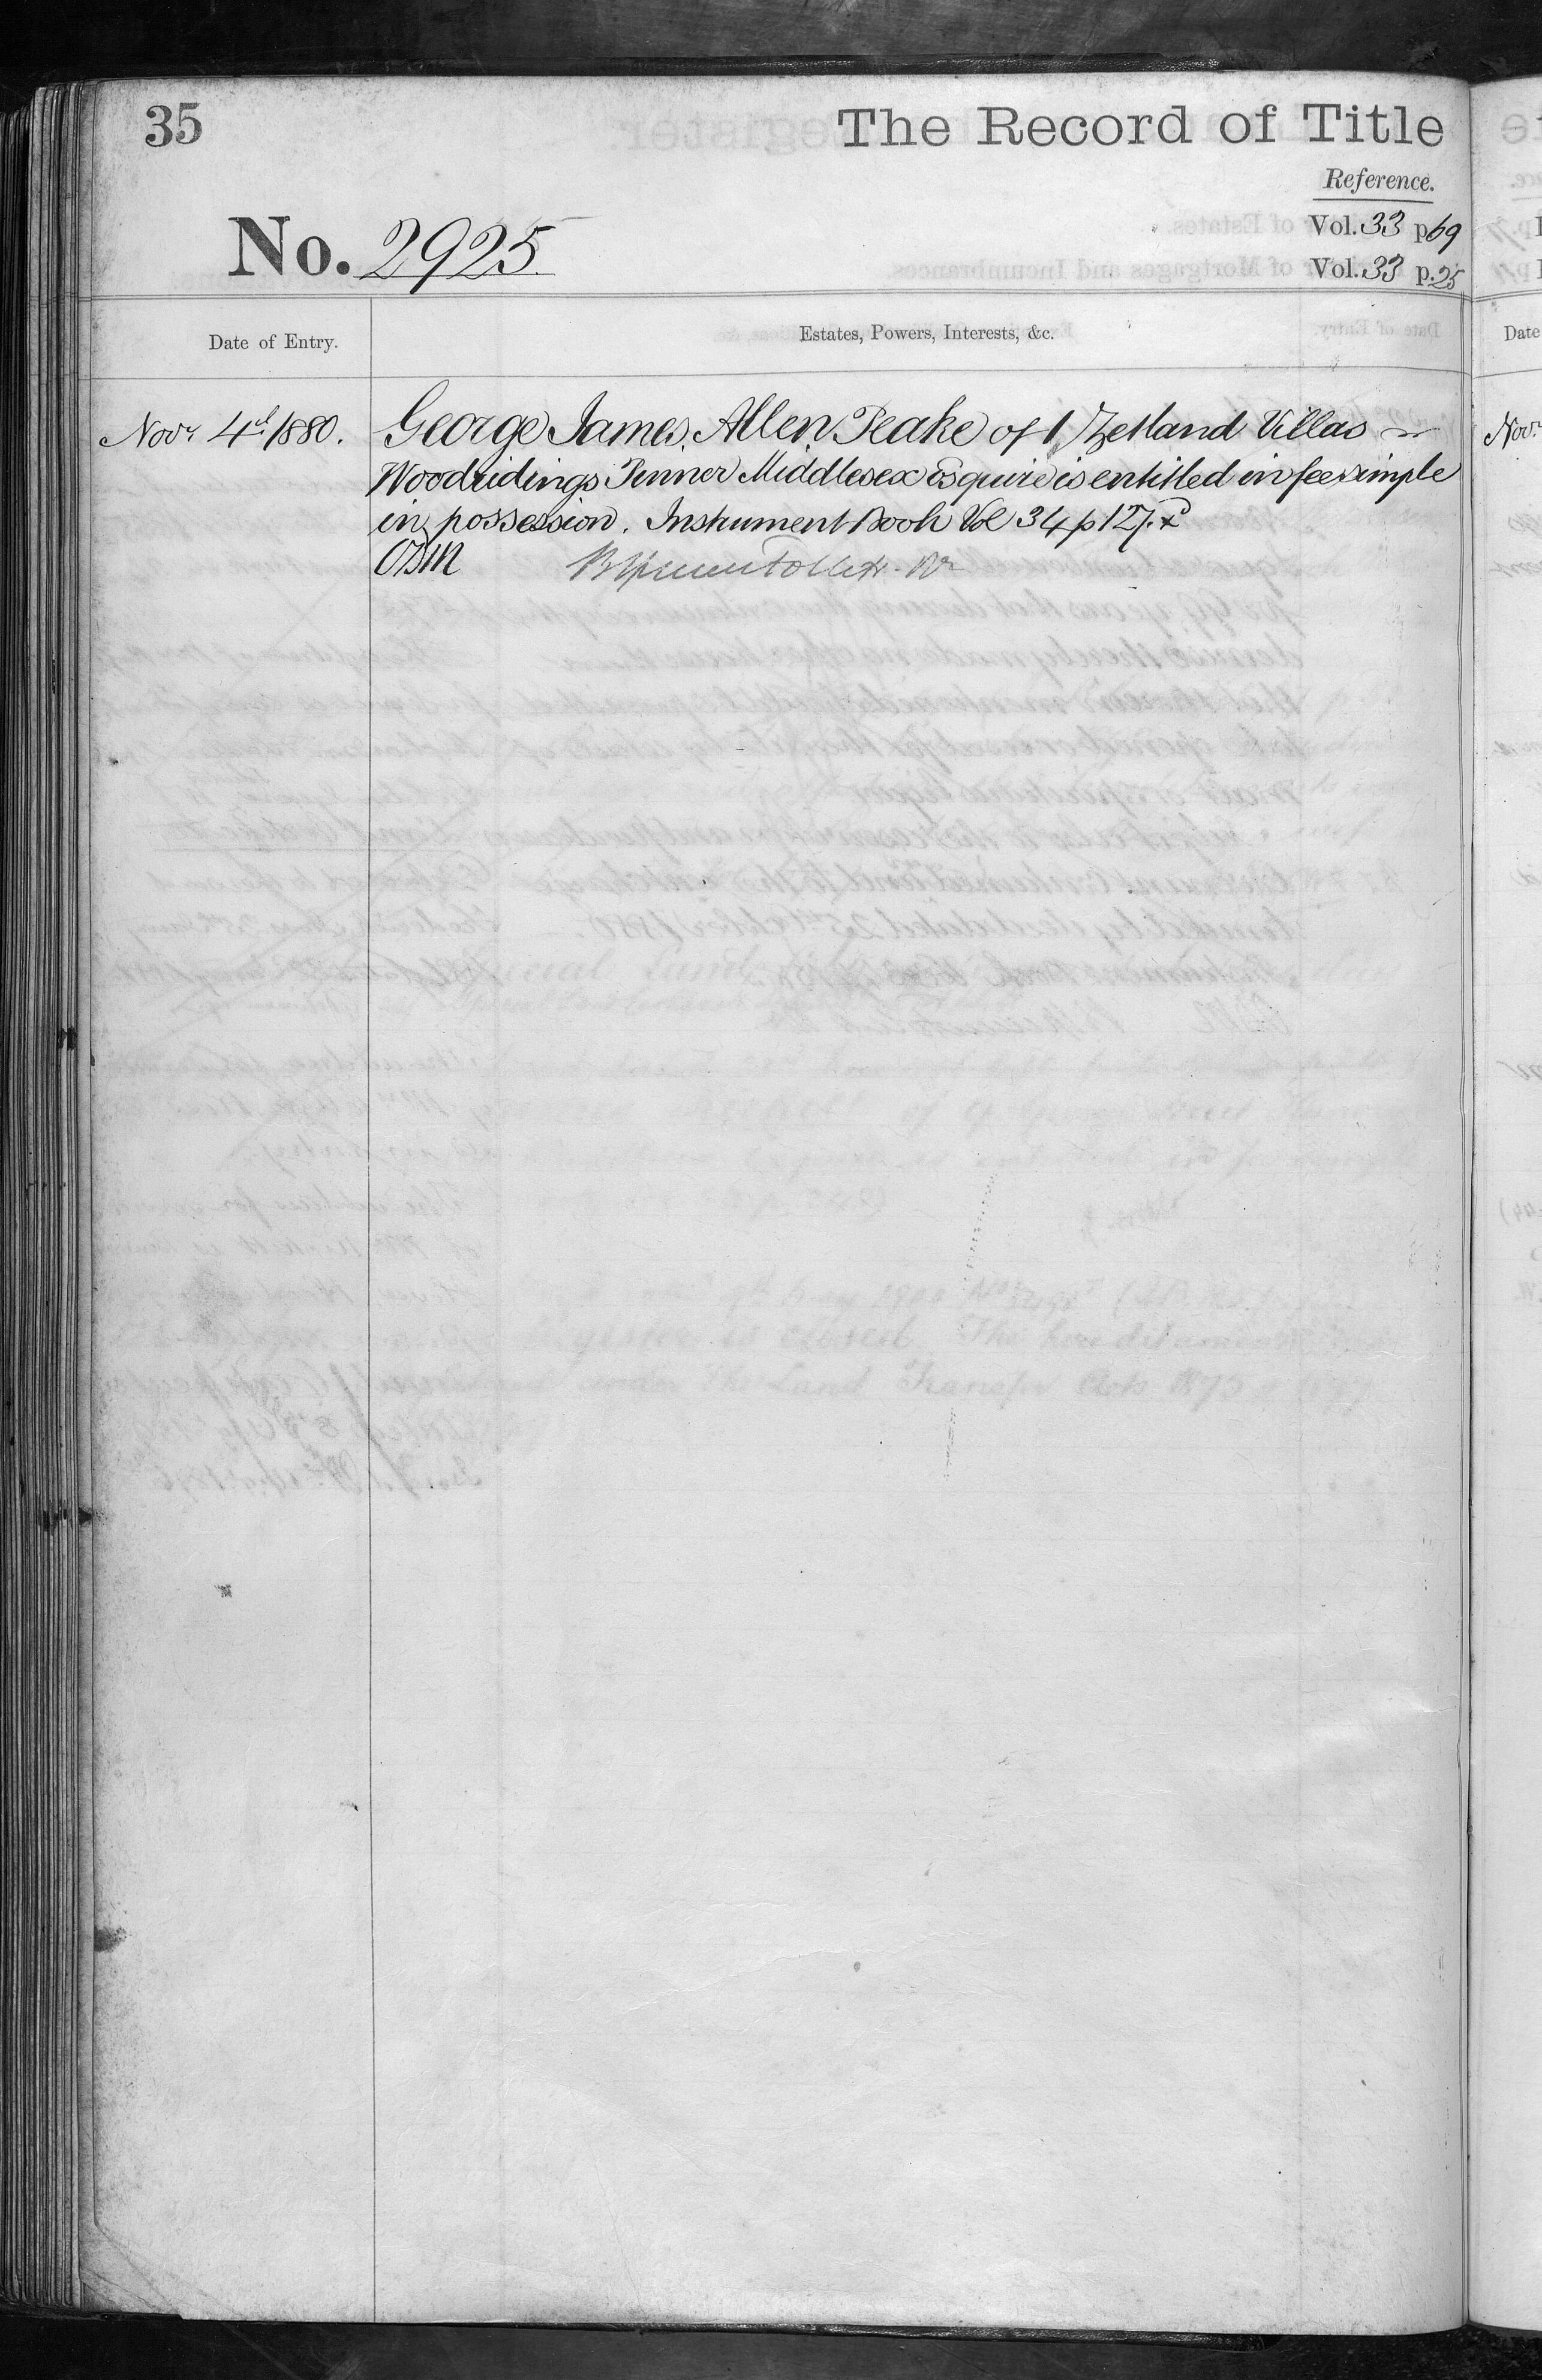 35
The Record of Title
Reference.
No. 2925
Vol. 33 p 69
Vol. 33 p. 25
Date of Entry.
Estates, Powers, Interests, &c.
Novr 4th 1880.
George James Allen Peake of 1 Zetland Villas
Woodridings Pinner Middlesex Esquire is entitled in fee simple
in possession. Instrument Book Vol 34 p 127.
Date
Novr